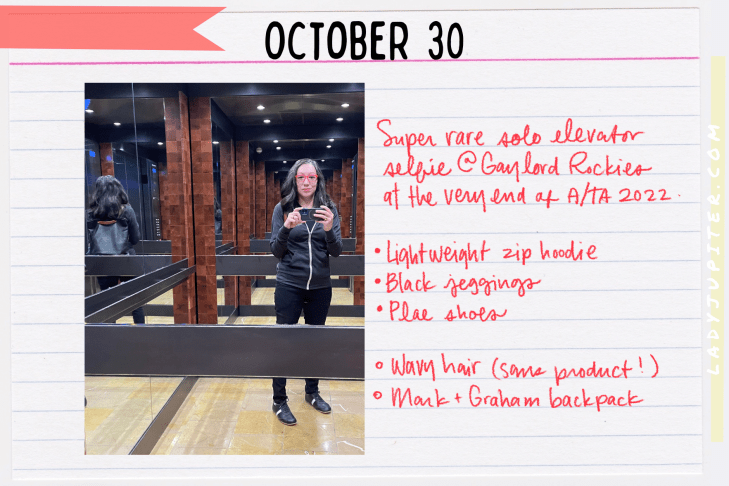 OCTOBER 30
Super rare solo elevator
selfie @ Gaylord Rockies
at the very end of A/TA 2022.
• Lightweight zip hoodie
• Black jeggings
• Plae shoes
• Wavy hair (sans product!)
• Mark + Graham backpack
LADYJUPITER.COM